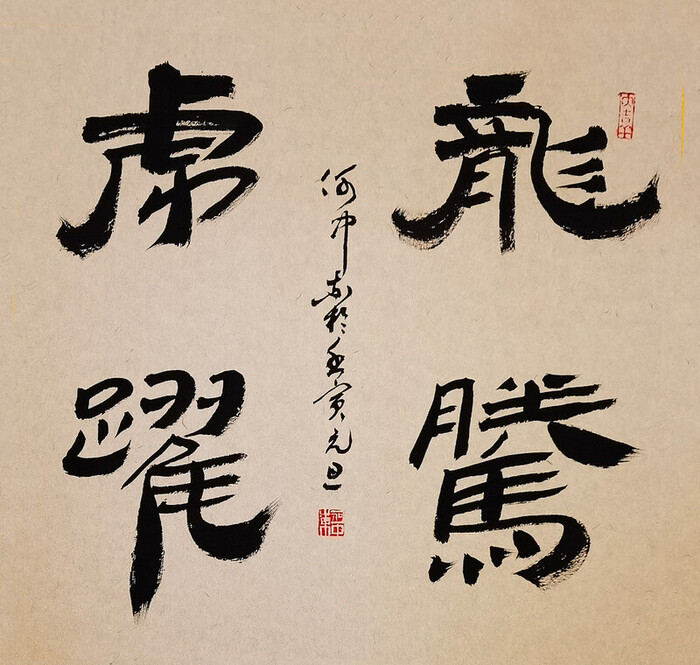 龍騰
虎躍
何中東於壬寅元旦